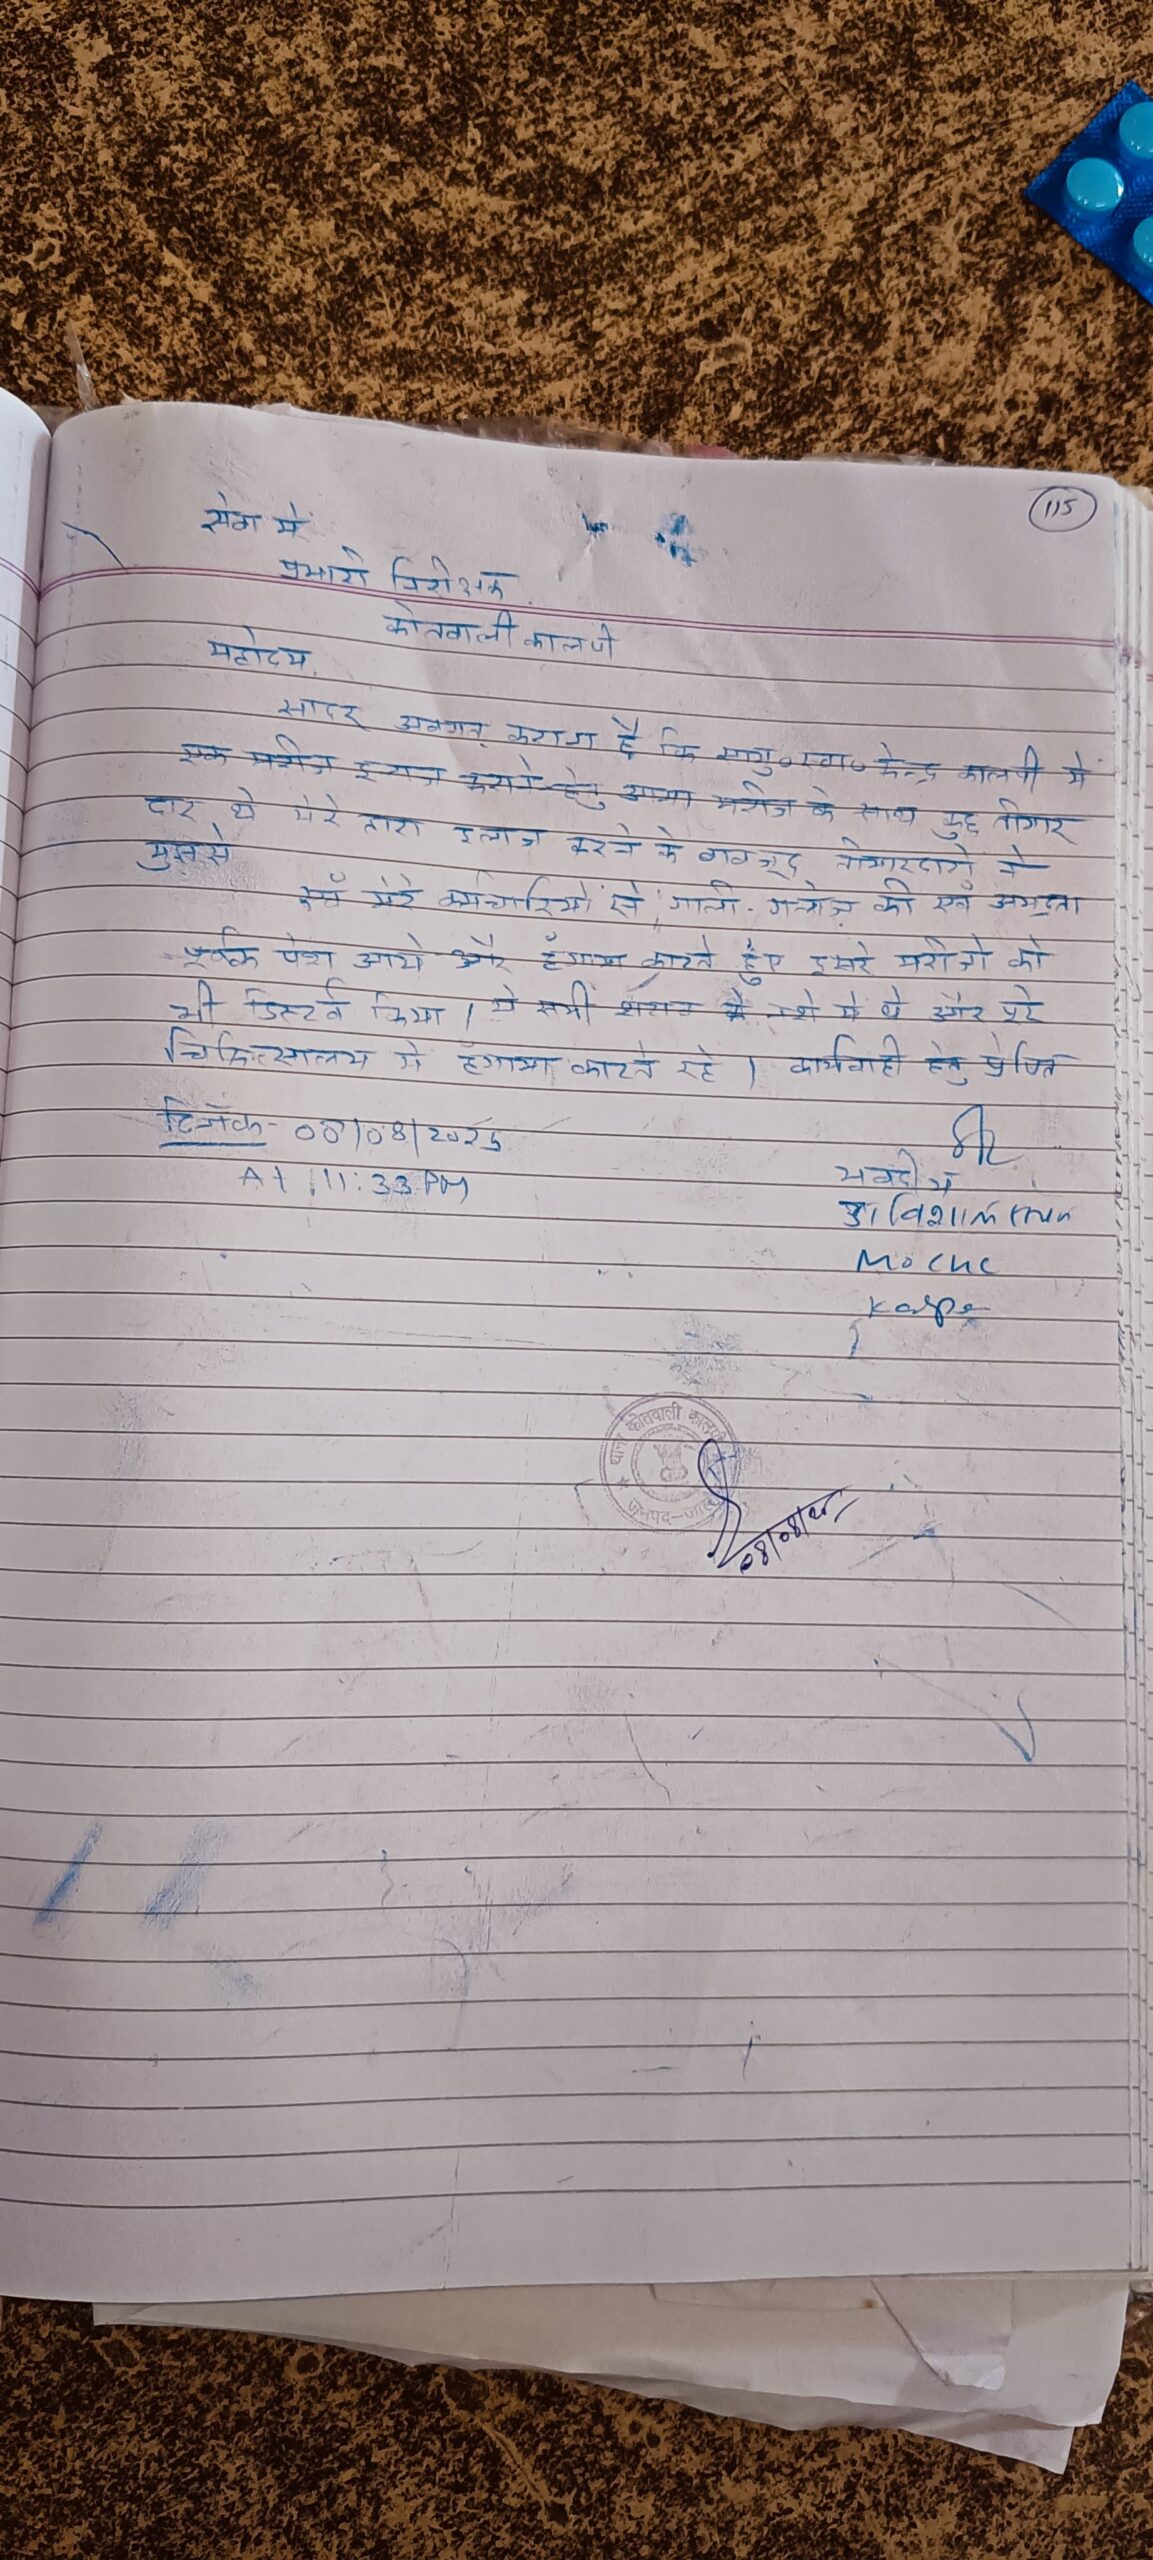 115
सेवा में
प्रभारी निरीक्षक
कोतवाली कालपी
महोदय,
सादर अवगत कराना है कि सामु०स्वा० केन्द्र कालपी में
एक मरीज इलाज कराने हेतु आया मरीज के साथ कुछ तीमार
दार थे मेरे द्वारा इलाज करने के बावजूद तीमारदारों ने
मुझसे
एवं मेरे कर्मचारियों से गाली-गलौज की एवं अभद्रता
पूर्वक पेश आये और हँगामा काटते हुए दूसरे मरीजों को
भी डिस्टर्व किया। ये सभी शराब के नशे में थे और पूरे
चिकित्सालय में हंगामा काटते रहे। कार्यवाही हेतु प्रेषित
दिनाँक- /08/2025
At 11:33 PM
भवदीय
डा विशाल
MO CHC
थाना कोतवाली कालपी
जनपद-जा
08/08/25